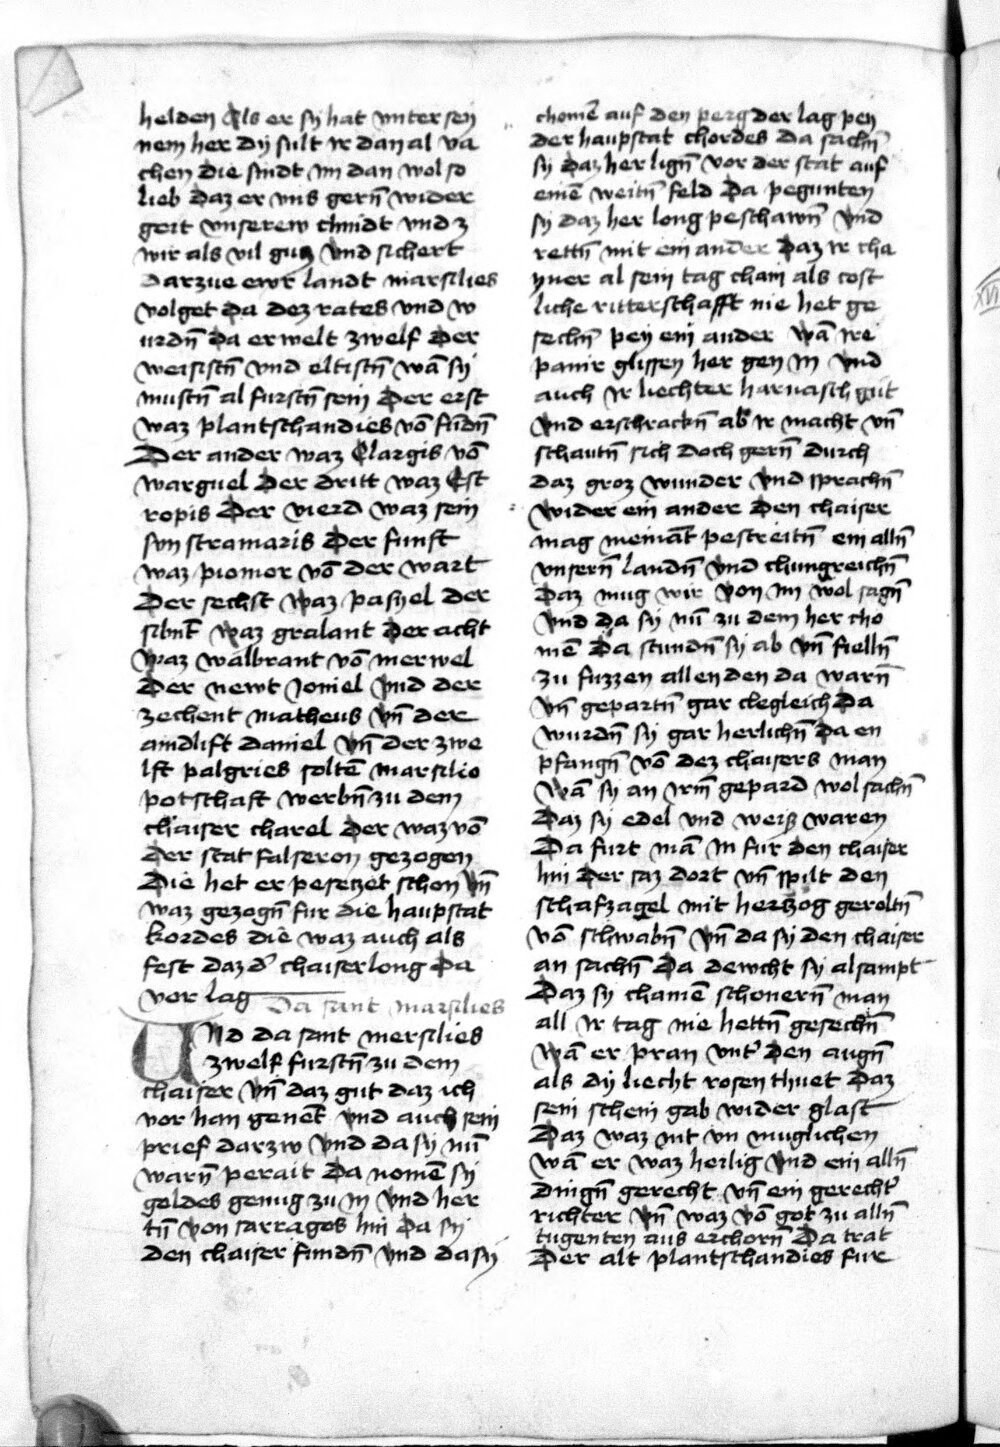 helden Als er sy hat vnter sey
nem her dy sult ir dan al va
chen die sindt im dan wol so
lieb daz er vns gern̄ wider
geit vnserew chindt vnd ʒ
wir als vil guz vnd sichert
darzue ewr landt marsilies
volget da dez rates vnd w
urdn̄ da erwelt zwelf Der
weisistn̄ vnd eltistn̄ wā sy
mustn̄ al furstn̄ sein Der erst
waz plantschandies vō fūdn̄
Der ander waz Clargis vō
warguel Der dritt waz Est
ropis Der vierd waz sein
sun stramaris Der funft
waz piomor vō der wart
Der sechst waz pasyel der
sibnt̄ waz gralant der acht
waz walbrant vō merwel
Der newt Joniel vnd der
zechent matheus vn̄ der
aindlift daniel vn̄ der zwe
lft palgries soltē marsilio
potschaft werbn̄ zu dem
chaiser charel Der waz vō
der stat falseron gezogen
Die het er pesetzet schon vn̄
waz gezogn̄ fur die haupstat
kordes die waz auch als
fest daz d' chaiser long Da
vor lag
Da sant marsilies
Vnd da sant mersilies
zwelf furstn̄ zu dem
chaiser vn̄ daz gut daz ich
vor han genēt vnd auch sein
prief darzw vnd da sy nū
warn̄ perait Da nomē sy
geldes genug zu in vnd her
tn̄ von sarragos hin Da sy
den chaiser fundn̄ vnd da sy
chomē auf den perg der lag pey
der haupstat chordes Da sachn̄
sy daz her lign̄ vor der stat auf
einē weitn̄ feld Da pegunten
sy daz her long peschawn̄ vnd
rettn̄ mit ein ander Daz ir cha
yner al sein tag chain als cost
liche ritterschafft nie het ge
sechn̄ pey ein ander wā ire
panir glissen her gen in vnd
auch ir liechter harnasch guit
vnd erschrackn̄ ab ir macht vn̄
schautn̄ sich doch gern̄ durch
daz groz wunder vnd sprachn̄
wider ein ander den chaiser
mag niemāt pestreitn̄ ein alln̄
vnsern̄ landn̄ vnd chungreichn̄
Daz mug wir von im wol sagn̄
vnd da sy nū zu dem her cho
mē Da stundn̄ sy ab vn̄ fielln̄
zu fuzzen allen den da warn̄
vn̄ gepartn̄ gar clegleich Da
wurdn̄ sy gar herlichn̄ Da en
pfangn̄ vō dez chaisers man
wā sy an irm̄ gepard wol sachn̄
Daz sy edel vnd weiß waren
Da furt mā in fur den chaiser
hin Der saz dort vn̄ spilt den
schafzagel mit hertzog geroltn̄
vō schwabn̄ vn̄ da sy den chaiser
an sachn̄ Da dewcht sy alsampt
Daz sy chainē schonern̄ man
all ir tag nie hettn̄ gesechn̄
wā er pran vnt' den augn̄
als dy liecht rosen thuet Daz
sein schein gab wider glast
Daz waz nit vn muglichen
wā er waz heilig vnd ein alln̄
Dingn̄ gerecht vn̄ ein gerecht'
richter vn̄ waz vō got zu alln̄
tugenten aus erchorn̄ Da trat
Der alt plantschandies fur